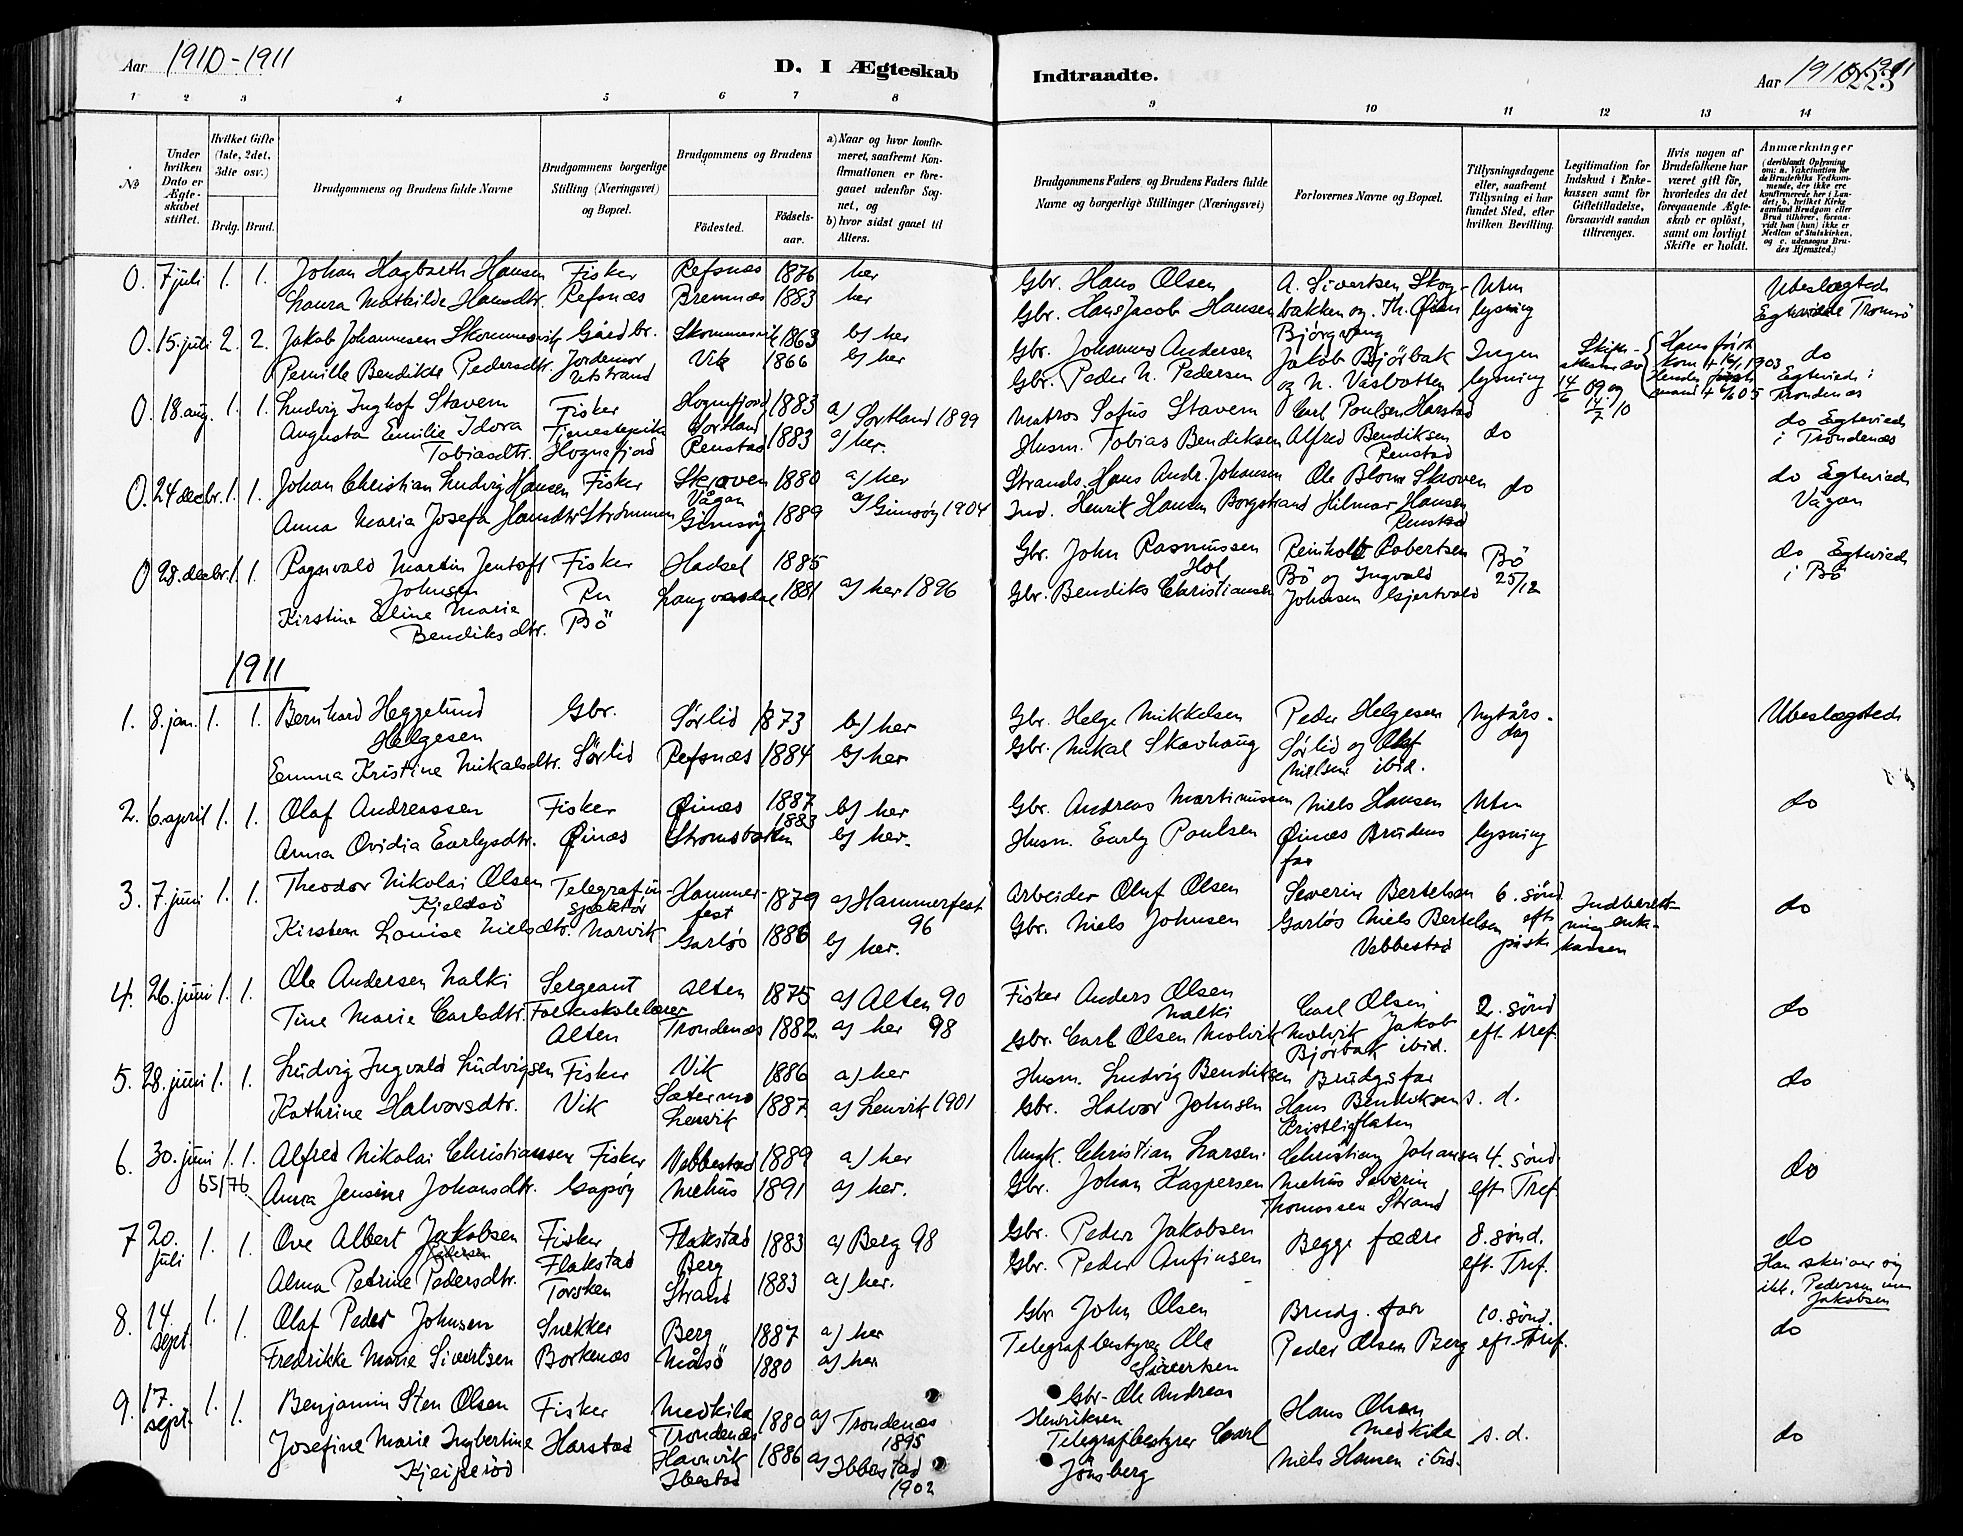 Aar 1910-1911
D. I Ægteskab
Indtraadte.
Aar 1910-1911
223
1 2 3 4 5 6 7 8 9 10 11 12 13 14
No
Under hvilken Dato er Ægteskabet stiftet.
Hvilket Gifte (1ste, 2det, 3die osv.)
Brdg. Brud.
Brudgommens og Brudens fulde Navne
Brudgommens borgerlige Stilling (Næringsvei) og Bopæl.
Brudgommens og Brudens
Fødested.
Fødselsaar.
a) Naar og hvor konfirmeret, saafremt Konfirmationen er foregaaet udenfor Sognet, og
b) hvor sidst gaaet til Alters.
Brudgommens Faders og Brudens Faders fulde Navne og borgerlige Stillinger (Næringsvei)
Forlovernes Navne og Bopæl.
Tillysningsdagene eller, saafremt Tillysning ei har fundet Sted, efter hvilken Bevilling.
Legitimation for Indskud i Enkekassen samt for Giftetilladelse, forsaavidt saadan tiltrænges.
Hvis nogen af Brudefolkene har været gift før, hvorledes da det foregaaende Ægteskab er opløst, samt om lovligt Skifte er holdt.
Anmærkninger
(deriblandt Oplysning om: a. Vakcination for de Brudefolks Vedkommende, der ikke ere konfirmerede her i Landet; b. hvilket Kirkesamfund Brudgom eller Brud tilhører, forsaavidt han (hun) ikke er Medlem af Statskirken, og c. udensogns Brudes Hjemsted.)
0. 7 juli 1. 1. Johan Hagbarth Hansen Fisker Refsnæs 1876 her Gbr. Hans Olsen A. Sivertsen Skog- Uten Ubeslægted
Laura Mathilde Hansdtr. Refsnæs Bremnæs 1883 her Gbr. Hans Jacob Hansen bakken og Th. Olsen lysning Egteviede Tromsö
Björgvang
0. 15. juli 2. 2. Jakob Johannesen Skommesvik Gårdbr. Skommesvik 1863 b) her Gbr. Johannes Andersen Jakob Björbak Ingen do
Pernille Bendikte Pedersdtr. Jordemor Utstrand Vik 1866 b) her Gbr. Peder N. Pedersen og N. Vasbotten lysning 14/6 09 og 1/2 10 Egteviede i Trondenæs
0. 18. aug. 1. 1. Ludvig Inghof Stavem Fisker Hognfjord Sortland 1883 a) Sortland 1899 Matros Sofus Stavem Carl Poulsen Harstad do Egteviede
Augusta Emilie Idora Tobiasdtr. Hognefjord Renstad 1883 a) her. Husm. Tobias Bendiksen Alfred Bendiksen Renstad do i Trondenæs
0. 24 decbr. 1. 1. Johan Christian Ludvig Hansen Fisker Skroven Vågan 1880 a) her Strands. Hans Andr. Johansen Ole Blom Skroven do do Egteviede
Anna Maria Josefa Hansdtr Strømmen Gimsöy 1889 a) Gimsöy 1904 Ind. Henrik Hansen Borgstrand Hilmar Hansen Renstad Vågan
0 28. decbr. 1. 1. Ragnvald Martin Jentoft Johnsen Fisker Hadsel 1885 Gbr. John Rasmussen Hol Reinholt Robertsen Bö do Egteviede
Kirstine Eline Marie Bendiksdtr. Bö 1881 a) her 1896 Gbr. Bendiks Christiansen Bö og Ingvald Johnsen Gjertvold 25/12 i Bö
1911
1. 8. jan. 1. 1. Bernhard Heggelund Helgesen Gbr. Sørlid 1873 b) her Gbr. Helge Mikkelsen Peder Helgesen Nytårs-dag Ubeslægted
Emma Kristine Mikalsdtr. Sørlid Refsnæs 1884 b) her Gbr. Mikal Skavhaug Sørlid og Olaf Nielsen ibid.
2. 6. april 1. 1. Olaf Andreassen Fisker Øinæs 1887 b) her Gbr. Andreas Martinussen Niels Hansen Uten do
Anna Ovidia Earlysdtr. Øinæs Stromsbotten 1883 b) her. Husm. Early Paulsen Øinæs Brudens far lysning
3. 7. juni 1. 1. Theodor Nikolai Olsen Kjeldsö Telegrafinspektör Hammerfest 1879 a) Hammerfest 96 Arbeider Oluf Olsen Severin Bertelsen 6. sønd. Indberetning enkekassen do
Kirsten Louise Nielsdtr. Narvik Garløs 1886 b) her. Gbr. Niels Johnsen Garløs Niels Bertelsen Vebbestad eft. påske
4. 26. juni 1. 1. Ole Andersen Nalki Sergeant Alten 1875 a) Alten 90 Fisker Anders Olsen Nalki Carl Olsen 2. sönd do
Tine Marie Carlsdtr. Folkeskolelærer Alten Trondenæs 1882 a) her 98 Gbr. Carl Olsen Molvik Molvik Jakob Björbak ibid. eft. tref.
5. 28. juni 1. 1. Ludvig Ingvald Ludvigsen Fisker Vik 1886 a) her Husm. Ludvig Bendiksen Brudgs far do
Kathrine Halvorsdtr. Vik Sætermo Lenvik 1887 a) Lenvik 1901 Gbr. Halvor Johnsen Hans Bendiksen s. d.
6. 30. juni 1. 1. Alfred Nikolai Christiansen Fisker Vebbestad 1889 a) her Ungk. Christian Larsen Christian Johansen 4. sønd do
65/76 Anna Jensine Johansdtr. Gapøy Melhus 1891 a) her. Gbr. Johan Kaspersen Melhus Severin Thomassen Strand eft. Tref.
7 20. juli 1. 1. Ove Albert Jakobsen Pedersen Fisker Flakstad 1883 a) Berg 98 Gbr. Peder Jakobsen Begge fædre 8. sønd. do
Alma Petrine Pedersdtr. Flakstad Torsken Berg Strand 1883 a) her. Gbr. Peder Anfinsen eft. Tref. Han skriver sig ikke Pedersen men Jakobsen
8. 14. sept. 1. 1. Olaf Peder Johnsen Snekker Berg 1887 a) her Gbr John Olsen Brudg. far 10. sønd. do
Fredrikke Marie Sivertsen Borkenæs Måsö 1880 a) her Telegrafbestyrer Ole Sivertsen Peder Olsen Berg eft. Tref.
9. 17. sept. 1. 1. Benjamin Sten Olsen Fisker Medkila Trondenæs 1880 a) Trondenæs 1895 Gbr- Ole Andreas Henriksen Hans Olsen Medkila s. d. do
Josefine Marie Ingbertine Kjeiserød Harstad Havnvik Ibestad 1886 a) Ibbestad 1902 Telegrafbestyrer Carl Jönsberg Niels Hansen ibid.